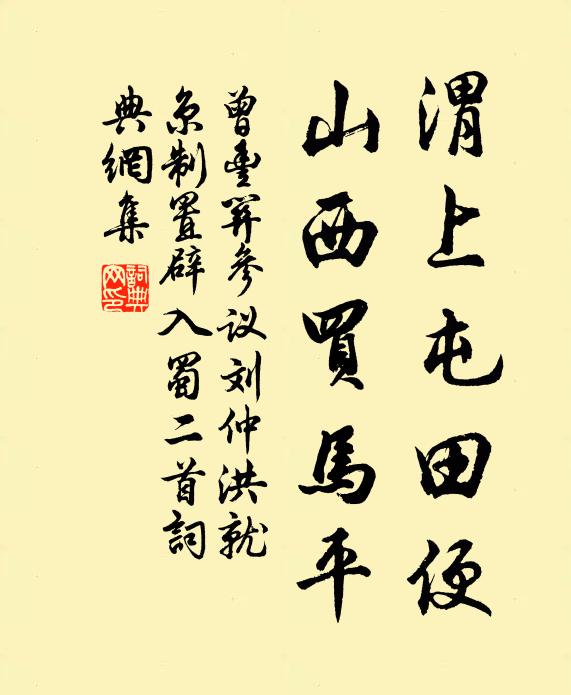 渭上屯田便
山西買馬平
曾豊羿參议刘仲洪就
京制置辟入蜀二首詞
典網集
詞典网印